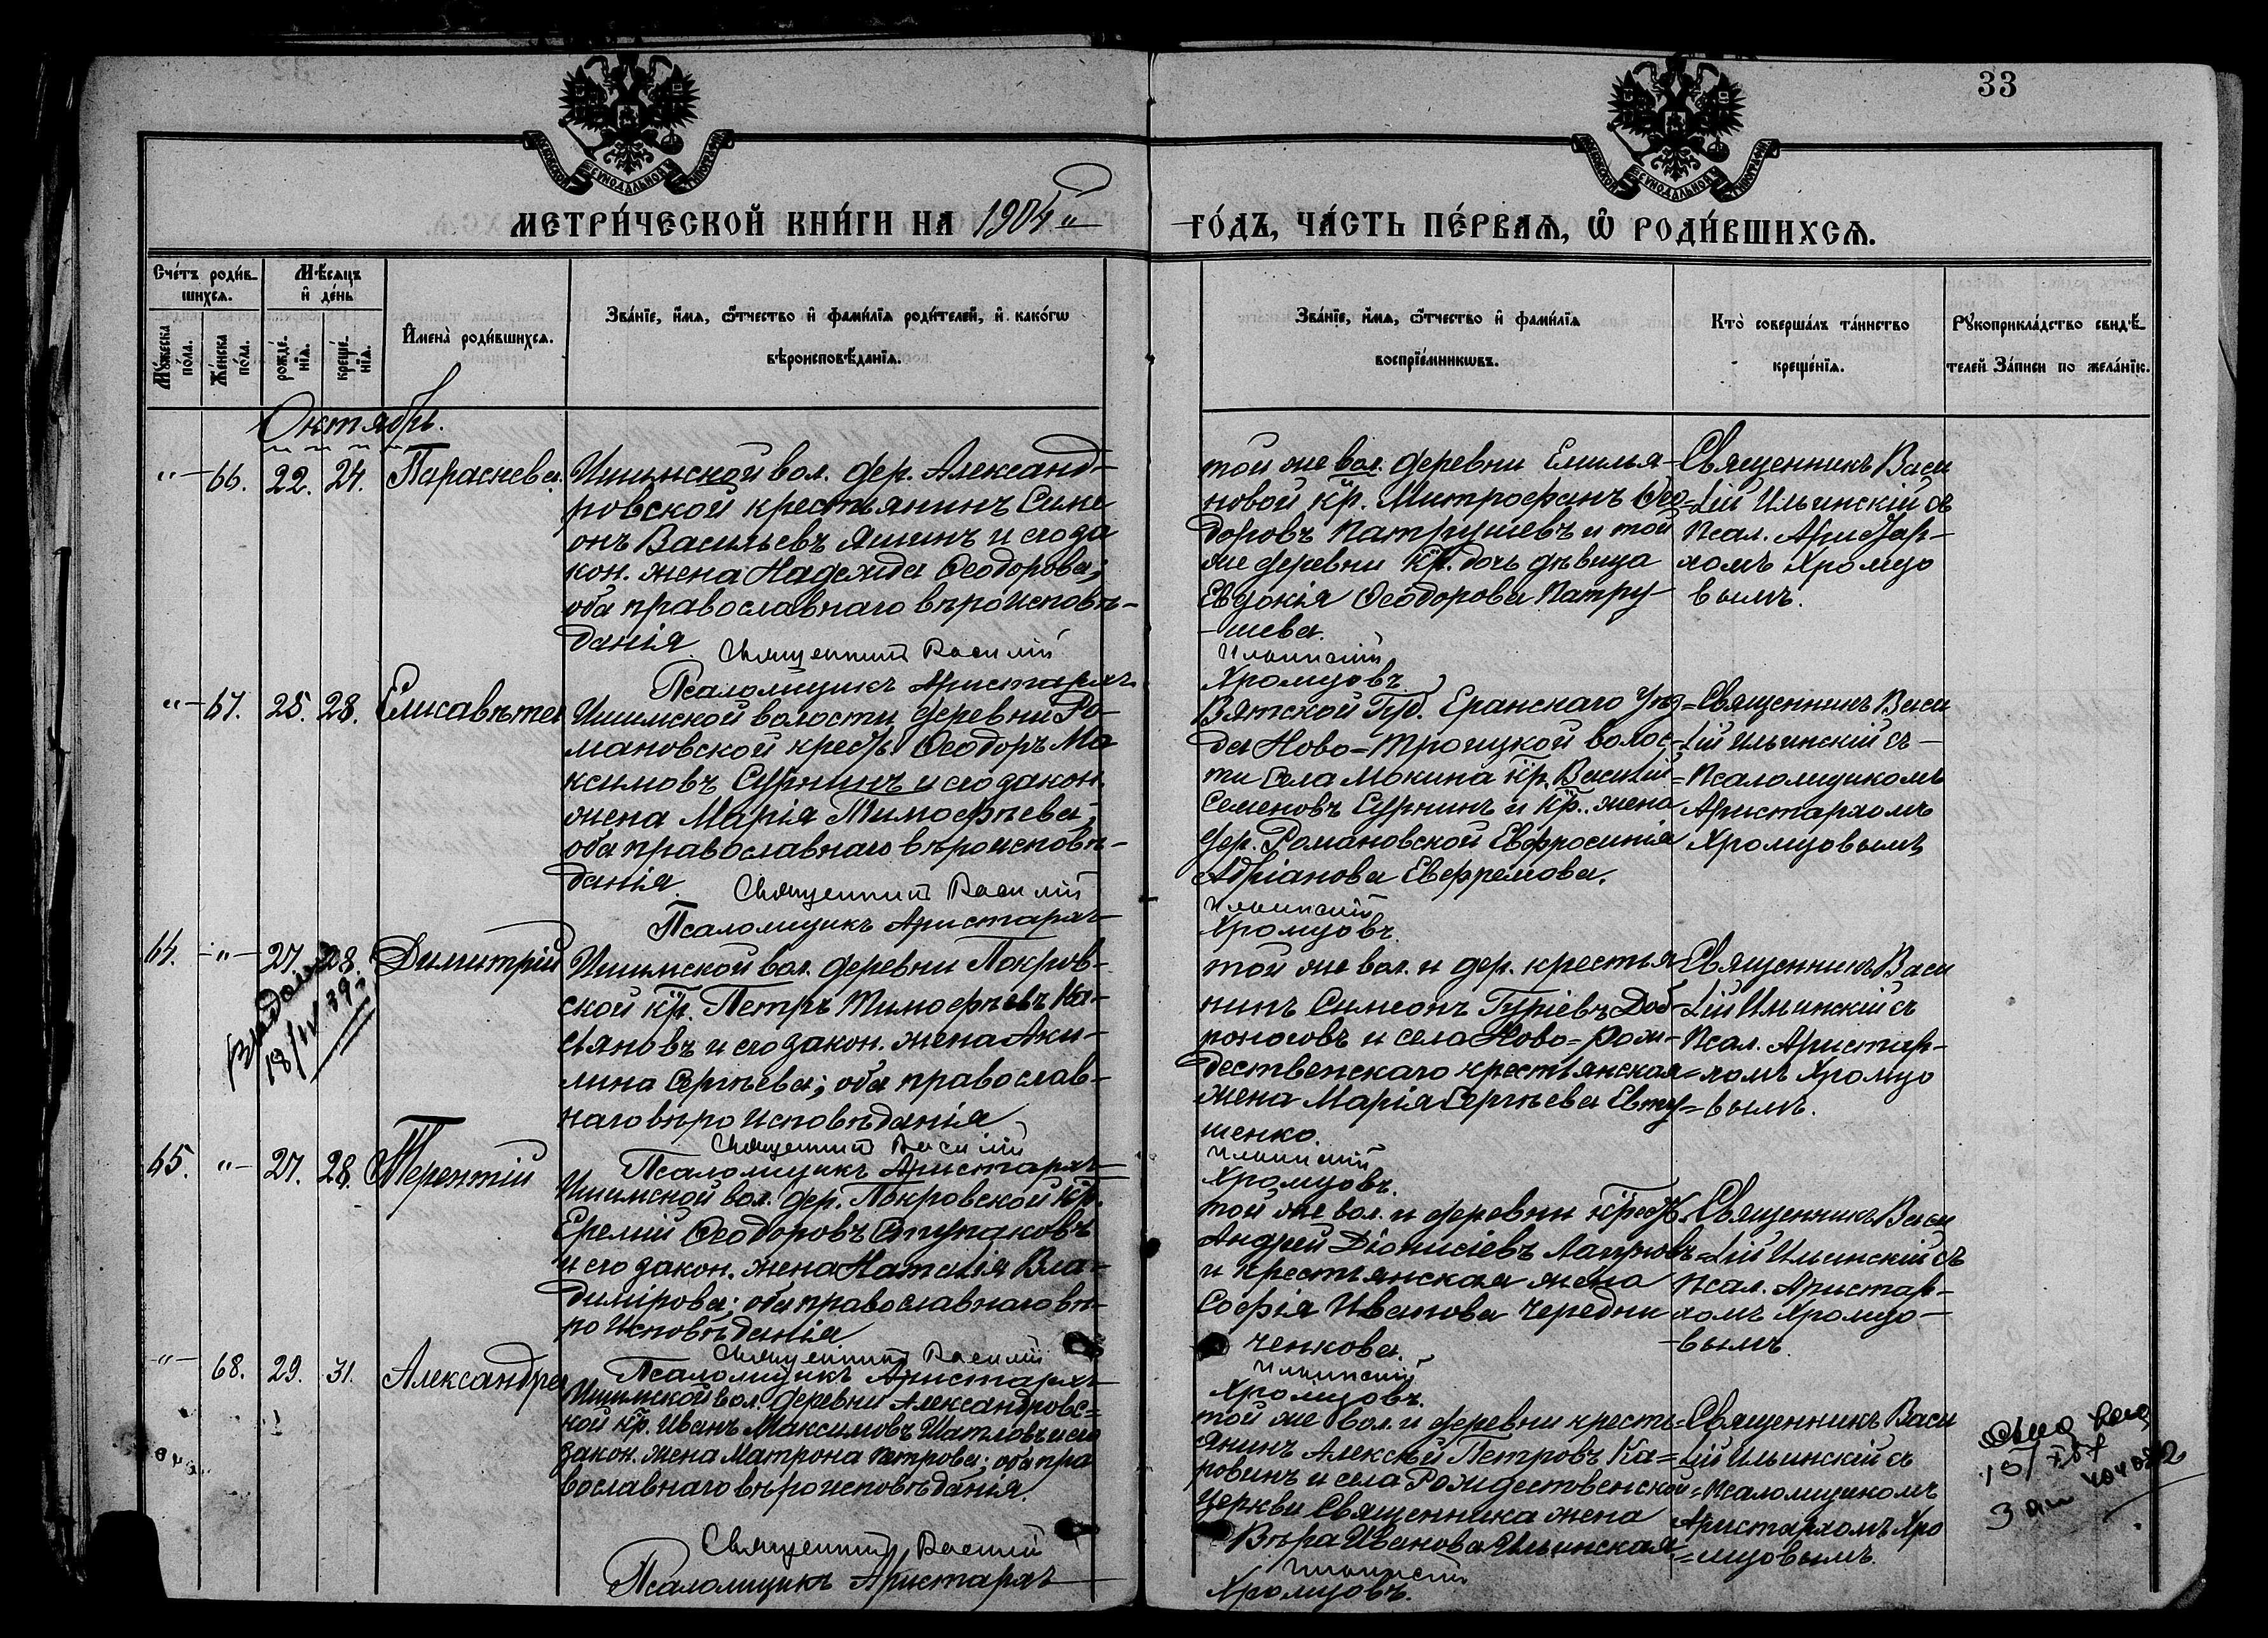 33
МЕТРИ́ЧЕСКОЙ КНИ́ГИ НА 1904й
ГО́ДЪ, ЧА́СТЬ ПЕ́РВАѦ, Ѡ҆ РОДИ́ВШИХСѦ.
Сче́тъ роди́в-
шихсѧ.
Мѣ́сѧцъ
и҆ де́нь
Мꙋ́жеска по́ла.
Же́нска по́ла.
рожде́нїѧ.
креще́нїѧ.
И҆мена̀ роди́вшихсѧ.
Зва́нїе, и҆́мѧ, ѻ҆́тчество и҆ фами́лїѧ роди́телей, и҆ како́гѡ
вѣроисповѣ́данїѧ.
Зва́нїе, и҆́мѧ, ѻ҆́тчество и҆ фами́лїѧ
воспрїе́мникѡвъ.
Кто̀ соверша́лъ та́инство
креще́нїѧ.
Рꙋкоприкла́дство свидѣ́-
телей за́писи по жела́нїю.
Октябрь.
"
66.
22.
24.
Параскева
Ишимской вол. дер. Александ-
ровской крестьянинъ Симе
онъ Васильевъ Яшинъ и его за
кон. жена Надежда Ѳеодорова;
оба православнаго вѣроисповѣ-
данія.
Священникъ Василій
Псаломщикъ Аристархъ
той же вол. деревни Емилья-
новой кр. Митрофанъ Ѳео-
доровъ Патрушевъ и той
же деревни кр. дочь дѣвица
Евдокія Ѳеодорова Патру-
шева.
Ильинскій
Хромцовъ
Священникъ Васи
лій Ильинскій съ
Псал. Аристар-
хомъ Хромцо
вымъ.
"
67.
25.
28.
Елисавета
Ишимской волости деревни Ро-
мановской крест. Ѳеодоръ Ма
ксимовъ Суркинъ и его закон.
жена Марія Тимоѳѣева;
оба православнаго вѣроисповѣ-
данія.
Священникъ Василій
Псаломщикъ Аристархъ
Вятской Губ. Еранскаго Уѣз-
да Ново-Троицкой волос-
ти Села Мокина кр. Василій
Семеновъ Суркинъ и кр. жена
дер. Романовской Евфросинія
Адріанова Евфремова.
Ильинскій
Хромцовъ.
Священникъ Васи
лій Ильинскій съ
Псаломщикомъ
Аристархомъ
Хромцовымъ
64.
"
27.
28.
Димитрій
18/IV 39 г.
Ишимской вол. деревни Покров-
ской кр. Петръ Тимоѳѣевъ Ка-
сьяновъ и его закон. жена Аки-
лина Сергѣева; оба православ-
наго вѣроисповѣданія
Священникъ Василій
Псаломщикъ Аристархъ
той же вол. и дер. крестья
нинъ Симеонъ Гуріевъ Доб-
роноговъ и села Ново-Рож-
дественскаго крестьянская
жена Марія Сергѣева Евту-
шенко.
Ильинскій
Хромцовъ.
Священникъ Васи
лій Ильинскій съ
Псал. Аристар-
хомъ Хромцо
вымъ.
65.
"
27.
28.
Терентій
Ишимской вол. дер. Покровской кр.
Еремій Ѳеодоровъ Ступаковъ
и его закон. жена Наталія Вла-
димірова; оба православнаго вѣ-
роисповѣданія
Священникъ Василій
Псаломщикъ Аристархъ
той же вол. и деревни крест.
Андрей Діонисіевъ Лапуновъ
и крестьянская жена
Софія Иванова Чередни
ченкова.
Ильинскій
Хромцовъ.
Священникъ Васи
лій Ильинскій съ
Псал. Аристар-
хомъ Хромцо-
вымъ.
"
68.
29.
31.
Александра
Ишимской вол. деревни Александровс-
кой кр. Иванъ Максимовъ Шатловъ и его
закон. жена Матрона Петрова; оба пра
вославнаго вѣроисповѣданія.
Священникъ Василій
Псаломщикъ Аристархъ
той же вол. и деревни кресть-
янинъ Алексѣй Петровъ Ка-
ровинъ и села Рождественской
церкви Священника жена
Вѣра Иванова Ильинская
Ильинскій
Хромцовъ.
Священникъ Васи
лій Ильинскій съ
Псаломщикомъ
Аристархомъ Хро
мцовымъ.